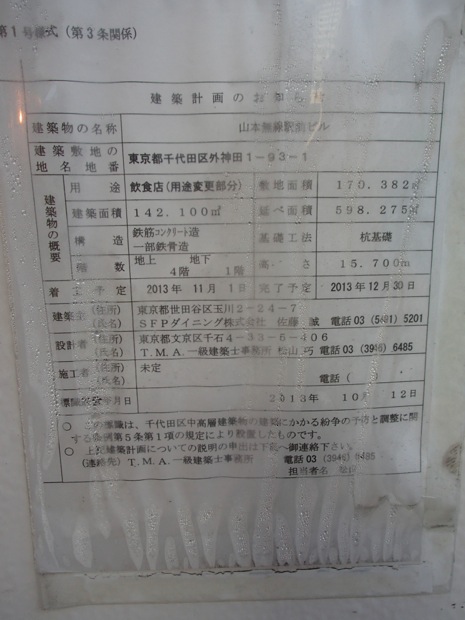 第1号様式（第3条関係）
建築計画のお知らせ
建築物の名称 山本無線駅前ビル
建築敷地の地名地番 東京都千代田区外神田1-93-1
建築物の概要
用途 飲食店(用途変更部分) 敷地面積 170.382㎡
建築面積 142.100㎡ 延べ面積 598.275㎡
構造 鉄筋コンクリート造 一部鉄骨造 基礎工法 杭基礎
階数 地上 4階 地下 1階 高さ 15.700m
着工予定 2013年 11月 1日 完了予定 2013年12月30日
建築主 (住所) 東京都世田谷区玉川2-24-7
(氏名) SFPダイニング株式会社 佐藤 誠 電話03 (5491) 5201
設計者 (住所) 東京都文京区千石4-33-6-406
(氏名) T.M.A.一級建築士事務所 松山 巧 電話03 (3946) 6485
施工者 (住所) 未定
(氏名) 電話 (
標識設置年月日 2013年 10月 12日
○ この標識は、千代田区中高層建築物の建築にかかる紛争の予防と調整に関
する条例第5条第1項の規定により設置したものです。
○ 上記建築計画についての説明の申出は下記へ御連絡下さい。
(連絡先) T.M.A.一級建築士事務所 電話03 (3946) 6485
担当者名 松山